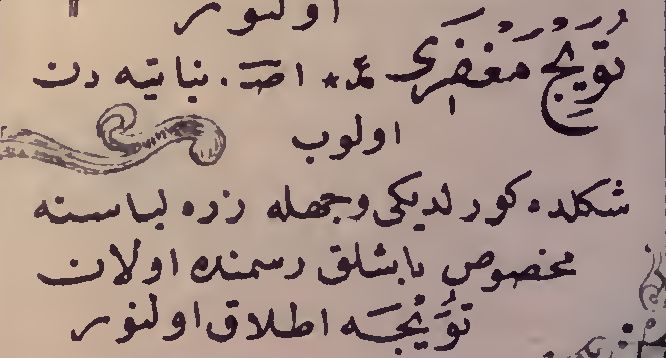 اولنور
تُوَيْجِ مغفرى * اصـ . نباتيه دن
اولوب
شكلده كورلديكى وجهله زره لباسنه
مخصوص باشلق رسمنده اولان
تُوَيْجَه اطلاق اولنور